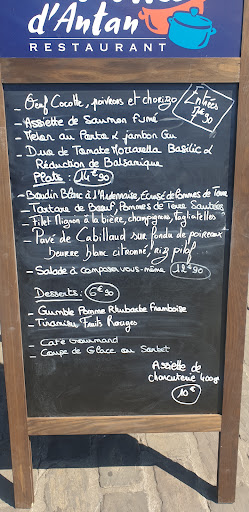 d'Antan
RESTAURANT
- Oeuf Cocotte, poivrons et chorizo
Entrées
7€90
- Assiette de Saumon Fumé
- Melon au Porto & jambon Cru
- Duo de Tomate Mozzarella Basilic &
Réduction de Balsamique
Plats: 14€90
- Boudin Blanc à l'Ardennaise, Ecrasé de Pommes de Terre
- Tartare de Boeuf, Pommes de Terre Sautées
- Filet Mignon à la bière, champignons, Tagliatelles
- Pavé de Cabillaud sur fondu de poireaux
beurre blanc citronné, riz pilaf
- Salade à composer vous-même 12€90
Desserts: 6€90
- Crumble Pomme Rhubarbe Framboise
- Tiramisu Fruits Rouges
- Café Gourmand
- Coupe de Glace ou Sorbet
Assiette de
charcuterie 400gr
10€